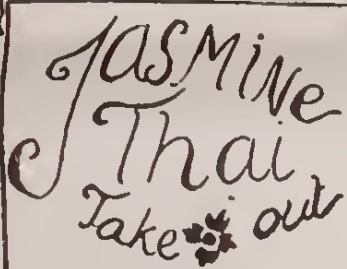 JASMiNe
Thai
Take out